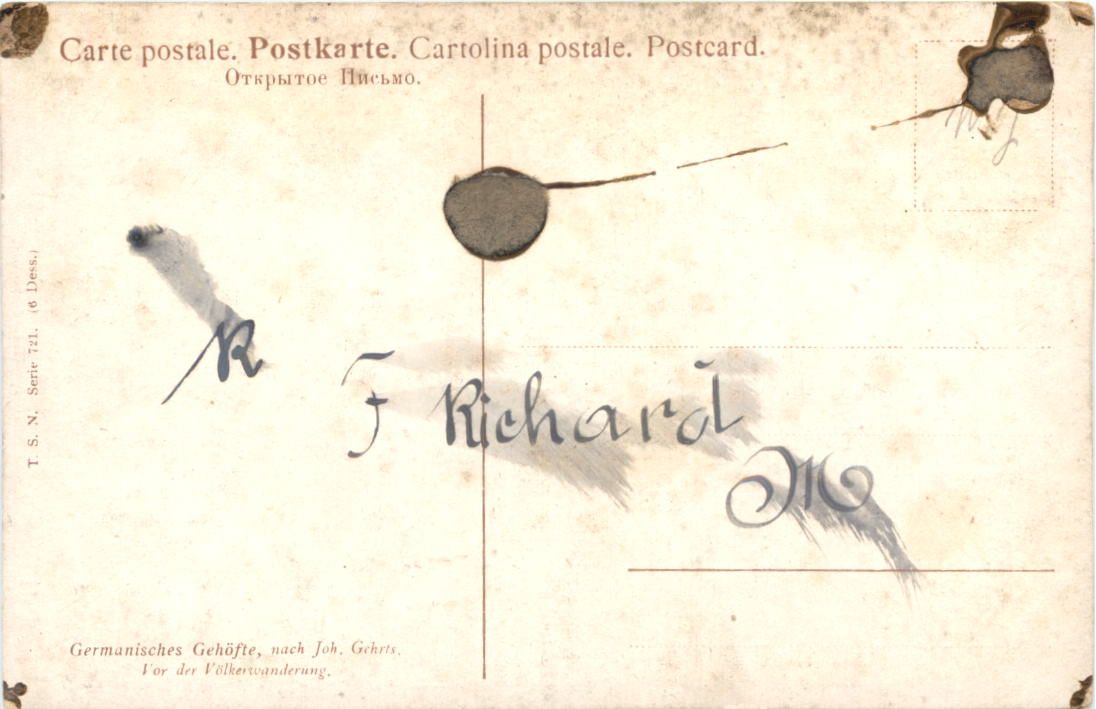 Carte postale. Postkarte. Cartolina postale. Postcard.
Открытое Письмо.
T. S. N. Serie 721. (6 Dess.)
R
F Richard
M
Germanisches Gehöfte, nach Joh. Gehrts.
Vor der Völkerwanderung.